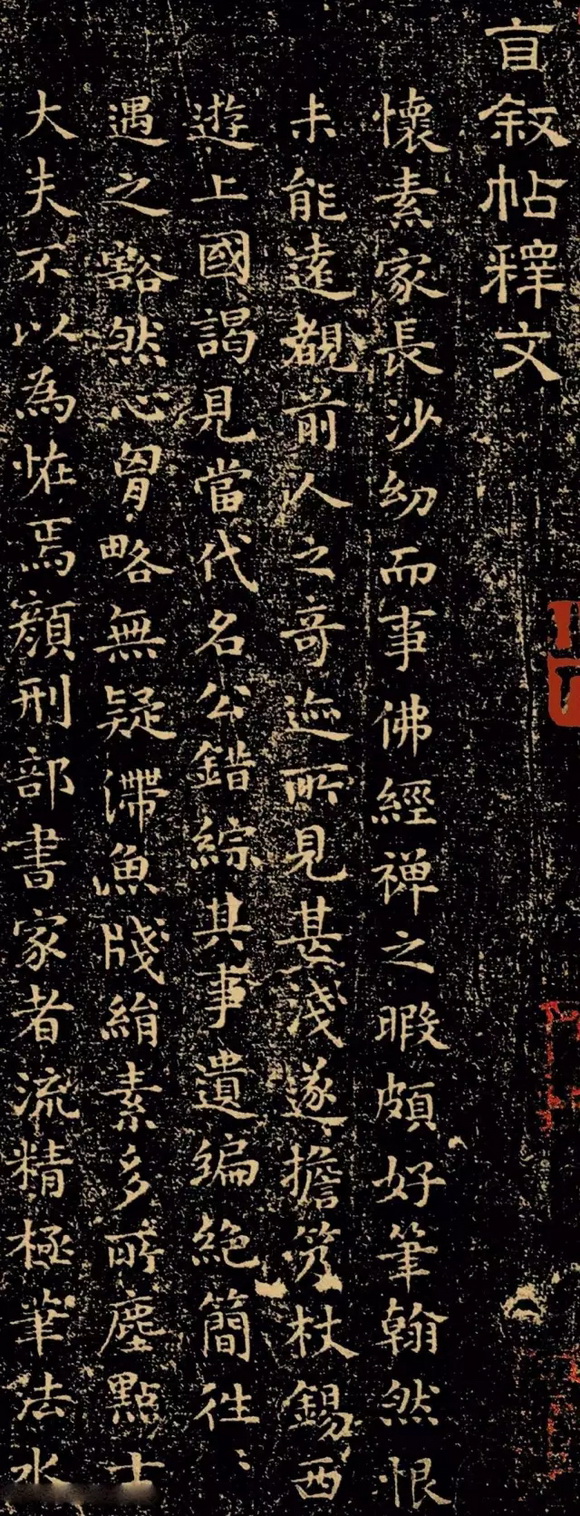 自叙帖釋文
懷素家長沙幼而事佛經禅之暇頗好筆翰然恨
未能遠覩前人之竒迹所見甚淺遂擔笈杖錫西
遊上國謁見當代名公錯綜其事遺編絶簡往〻
遇之豁然心胷略無疑滯魚牋絹素多所塵點士
大夫不以為恠焉顔刑部書家者流精極筆法水